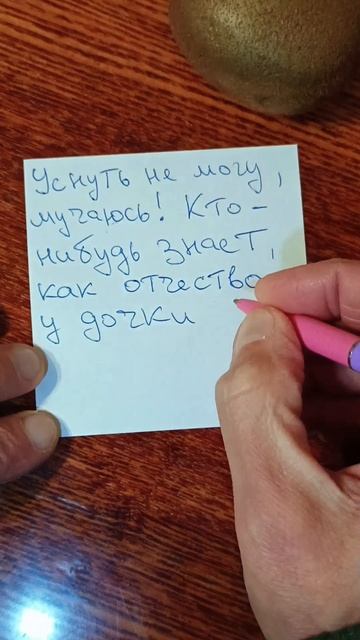 Уснуть не могу,
мучаюсь! Кто-
нибудь знает,
как отчество
у дочки